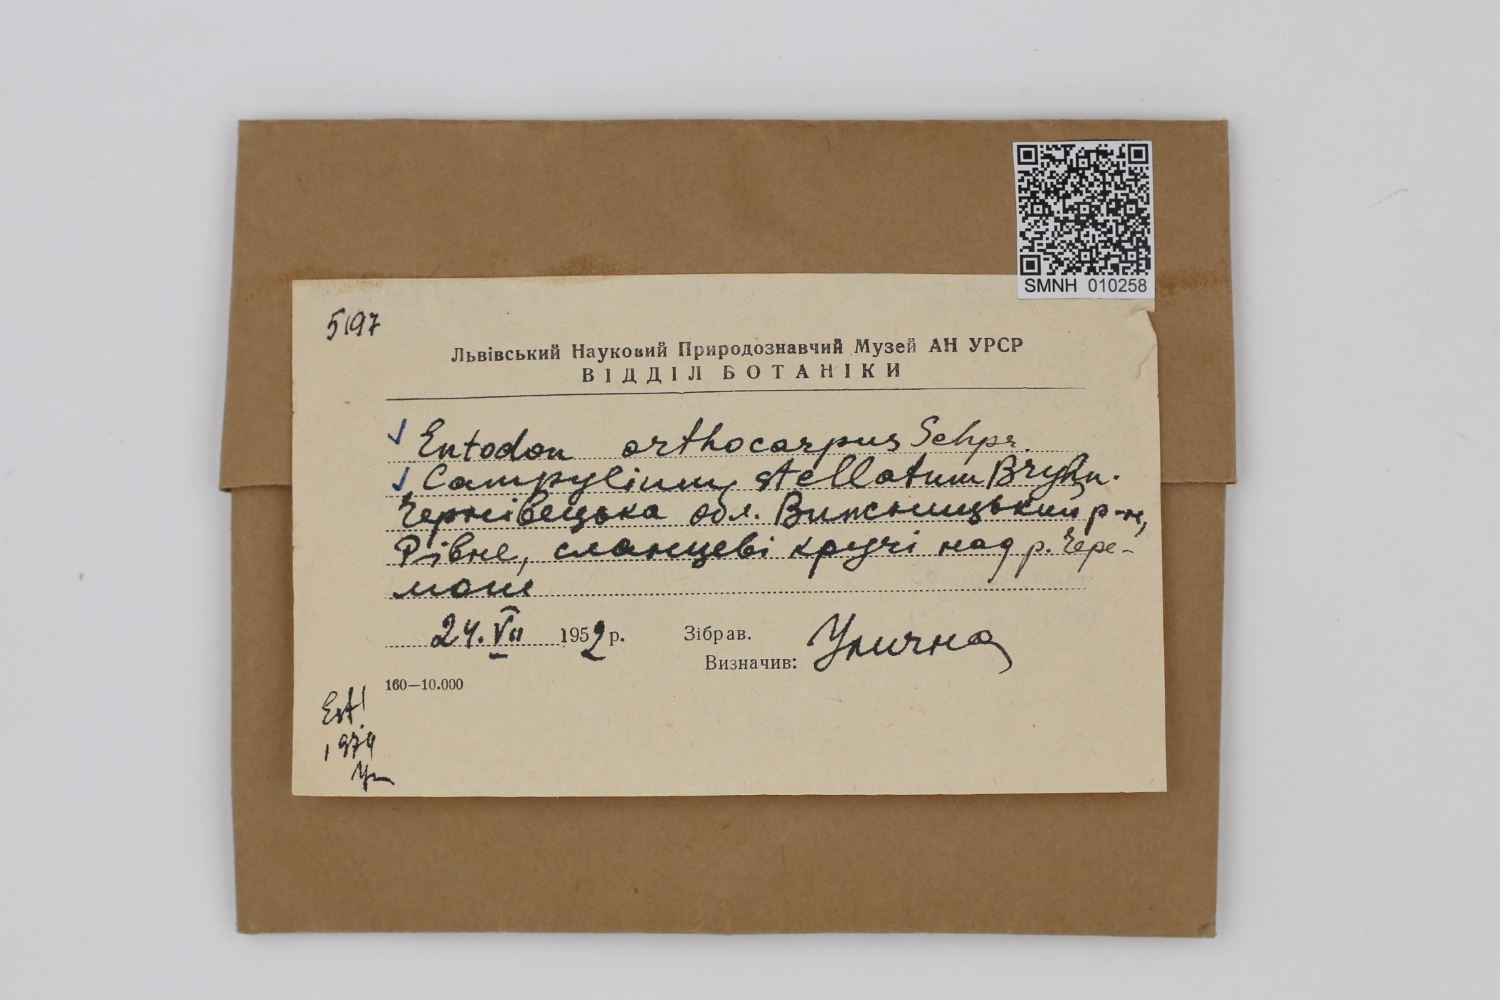 SMNH 010258
5197
Львівський Науковий Природознавчий Музей АН УРСР
ВІДДІЛ БОТАНІКИ
Entodon orthocarpus Schpr.
Campylium stellatum Bryhn.
Чернівецька обл. Вижницький р-н,
Рівне, сланцеві кручі над р. Чере-
мош
24.VII 1952 р. Зібрав. Улична
Визначив:
160—10.000
Est!
1974